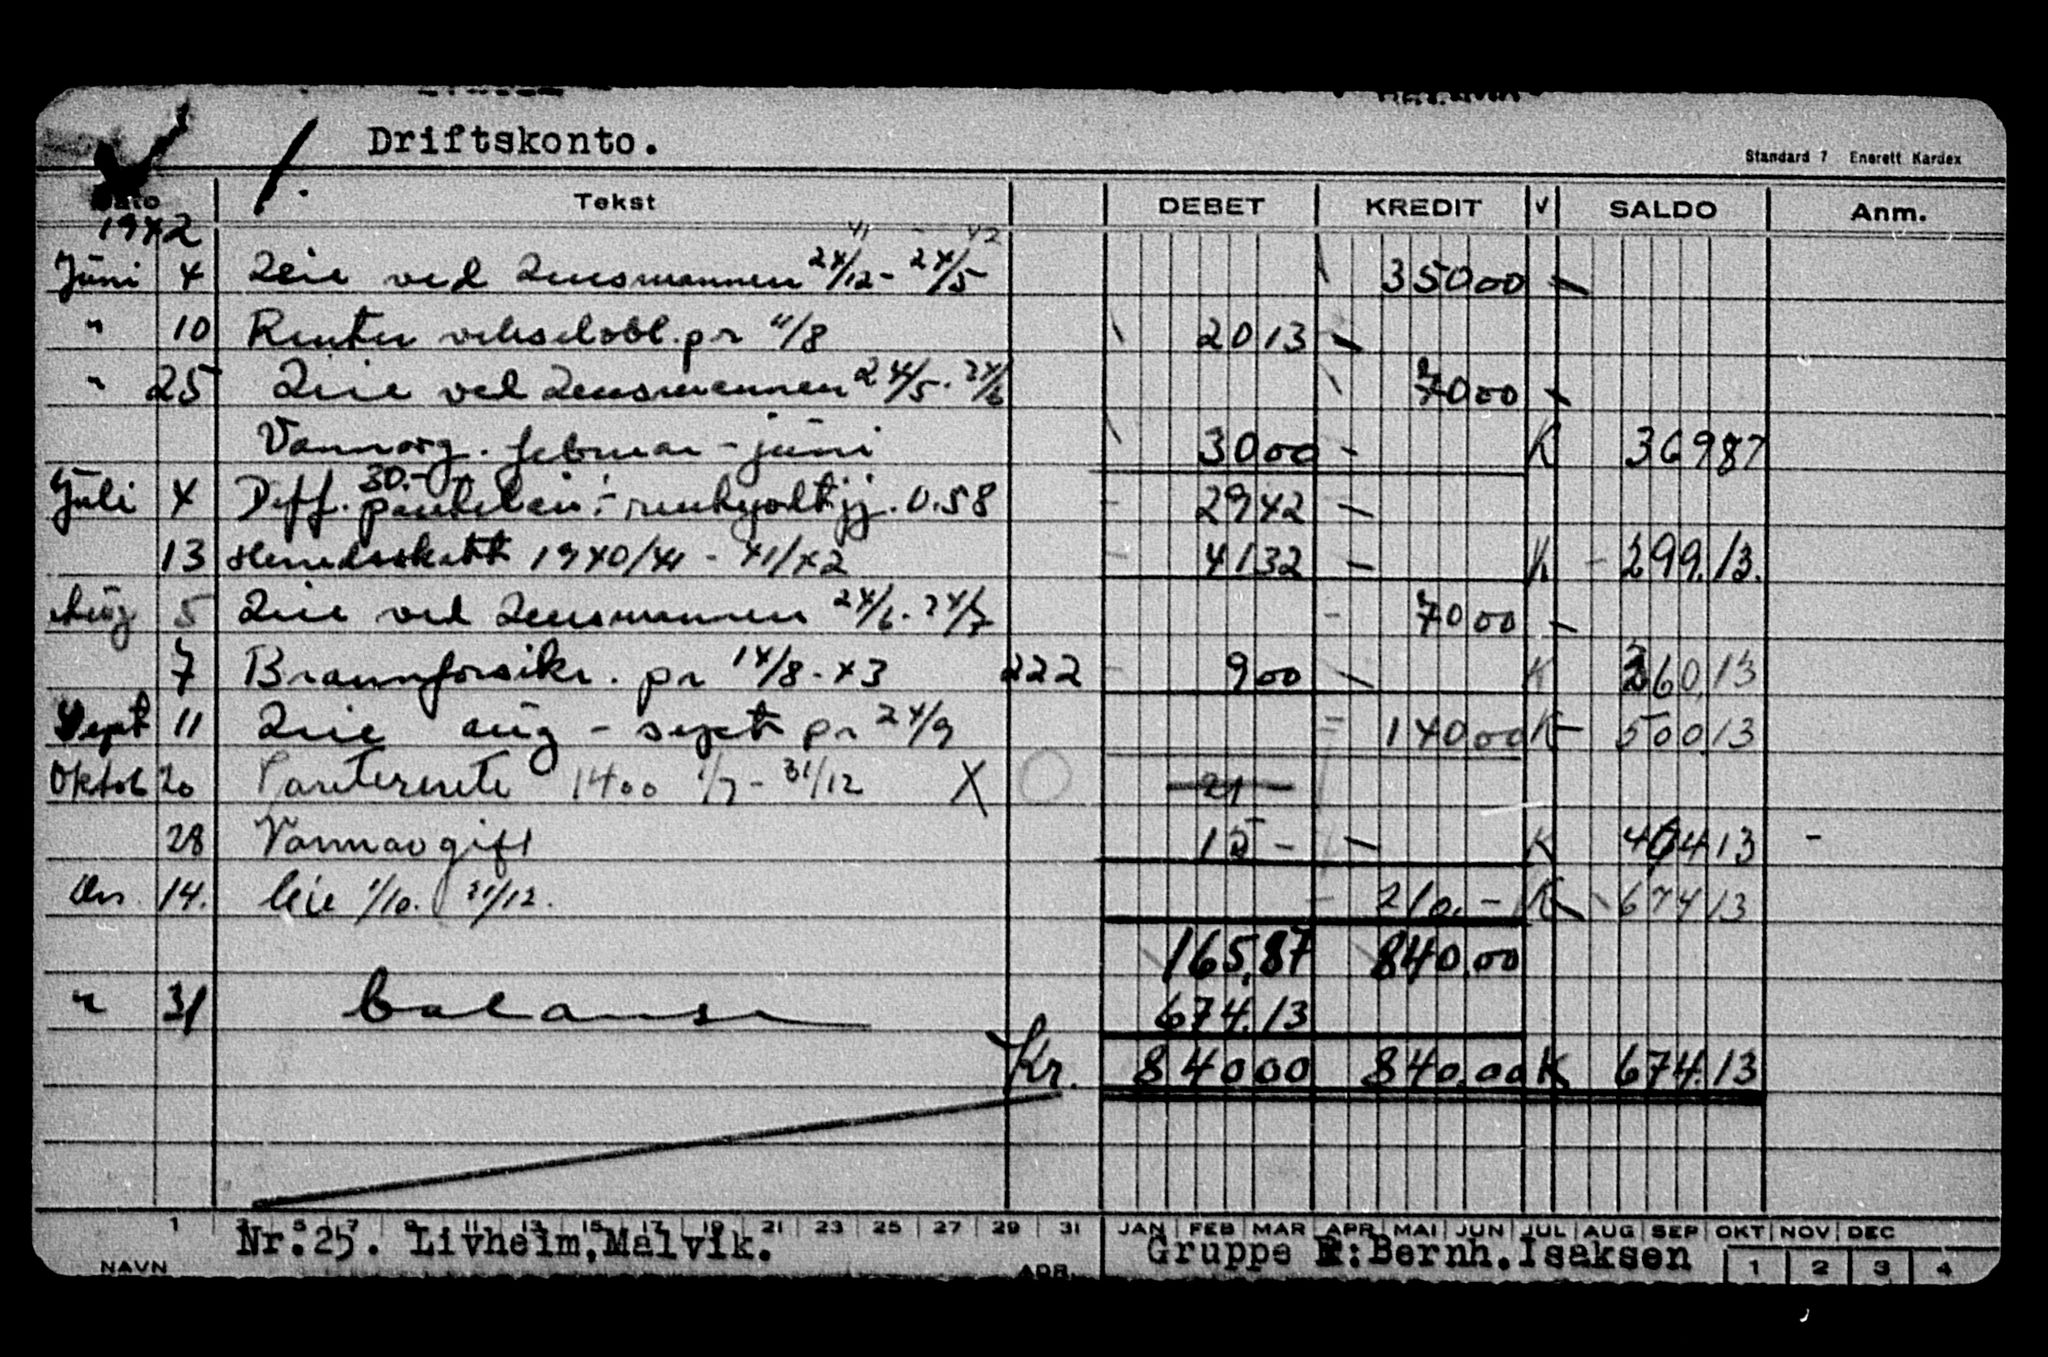 Driftskonto.
Standard 7 Enerett Kardex
Dato Tekst DEBET KREDIT V SALDO Anm.
1942
Juni 4 Leie ved Lensmannen 24/12 41 - 24/5 42 350 00
" 10 Renter vekselobl. pr 11/8 20 13
" 25 Leie ved Lensmannen 24/5 - 24/6 70 00
Vannavg. februar - juni 30 00 K 369 87
Juli 4 Diff. pantelån 30.- - 0.58 29 42
13 Herredsskatt 1940/41 - 41/42 41 32 K 299.13.
Aug 5 Leie ved Lensmannen 24/6 - 24/7 70 00
7 Brannforsikr. pr 14/8 - 43 222 9 00 K 360,13
Sept 11 Leie aug - sept pr 24/9 140 00 K 500,13
Oktob 20 Panterente 1400 1/7 - 31/12 X 21
28 Vannavgift 15 - K 464 13 -
Des. 14. leie 1/10. 31/12. 210.- K 674 13
165,87 840,00
" 31 balanse 674.13
Kr. 840 00 840,00 K 674.13
1 3 5 7 9 11 13 15 17 19 21 23 25 27 29 31 JAN FEB MAR APR MAI JUN JUL AUG SEP OKT NOV DEC
Nr. 25. Livheim, Malvik. Gruppe F: Bernh. Isaksen
NAVN ADR. 1 2 3 4